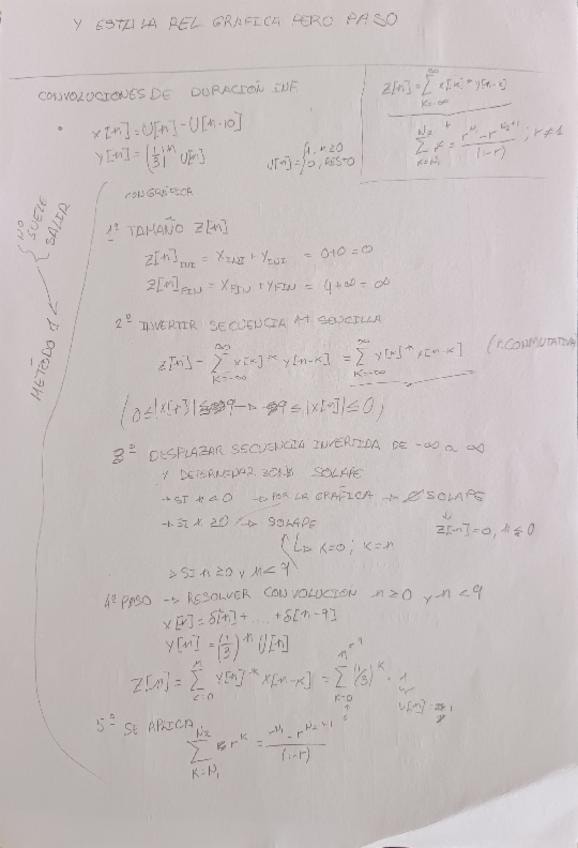 Y ESTA LA DEL GRÁFICA PERO PASO
CONVOLUCIONES DE DURACIÓN INF
Z[n] = ∑_{K=-∞}^{∞} x[k] * y[n-k]
∑_{K=N₁}^{N₂} r^k = (r^{N₁} - r^{N₂+1}) / (1-r) ; r≠1
x[n] = U[n] - U[n-10]
Y[n] = (1/3)^n U[n]
U[n] = { 1, n≥0
0, RESTO
CON GRÁFICA
MÉTODO 1 → NO SUELE SALIR
1º TAMAÑO Z[n]
Z[n]_INI = X_INI + Y_INI = 0+0 = 0
Z[n]_FIN = X_FIN + Y_FIN = 9+∞ = ∞
2º INVERTIR SECUENCIA M+ SENCILLA
Z[n] = ∑_{K=-∞}^{∞} x[k] * y[n-k] = ∑_{K=-∞}^{∞} y[k] * x[n-k] (P. CONMUTATIVA
(0 ≤ |x[n]| ≤ 9 → -9 ≤ |x[n]| ≤ 0)
3º DESPLAZAR SECUENCIA INVERTIDA DE -∞ a ∞
Y DETERMINAR ZONAS SOLAPE
→ SI n<0 → POR LA GRÁFICA → ∅ SOLAPE
→ SI n ≥0 → SOLAPE
Z[n]=0, n≤0
↳ K=0 ; K=n
→ SI n ≥0 y n<9
4º PASO → RESOLVER CONVOLUCIÓN n≥0 y n<9
X[n] = δ[n] + .... + δ[n-9]
Y[n] = (1/3)^n U[n]
Z[n] = ∑_{K=0}^{n} Y[n] * x[n-k] = ∑_{K=0}^{n} (1/3)^k · 1
5º SE APLICA
∑_{K=N₁}^{N₂} r^k = (r^{N₁} - r^{N₂+1}) / (1-r)